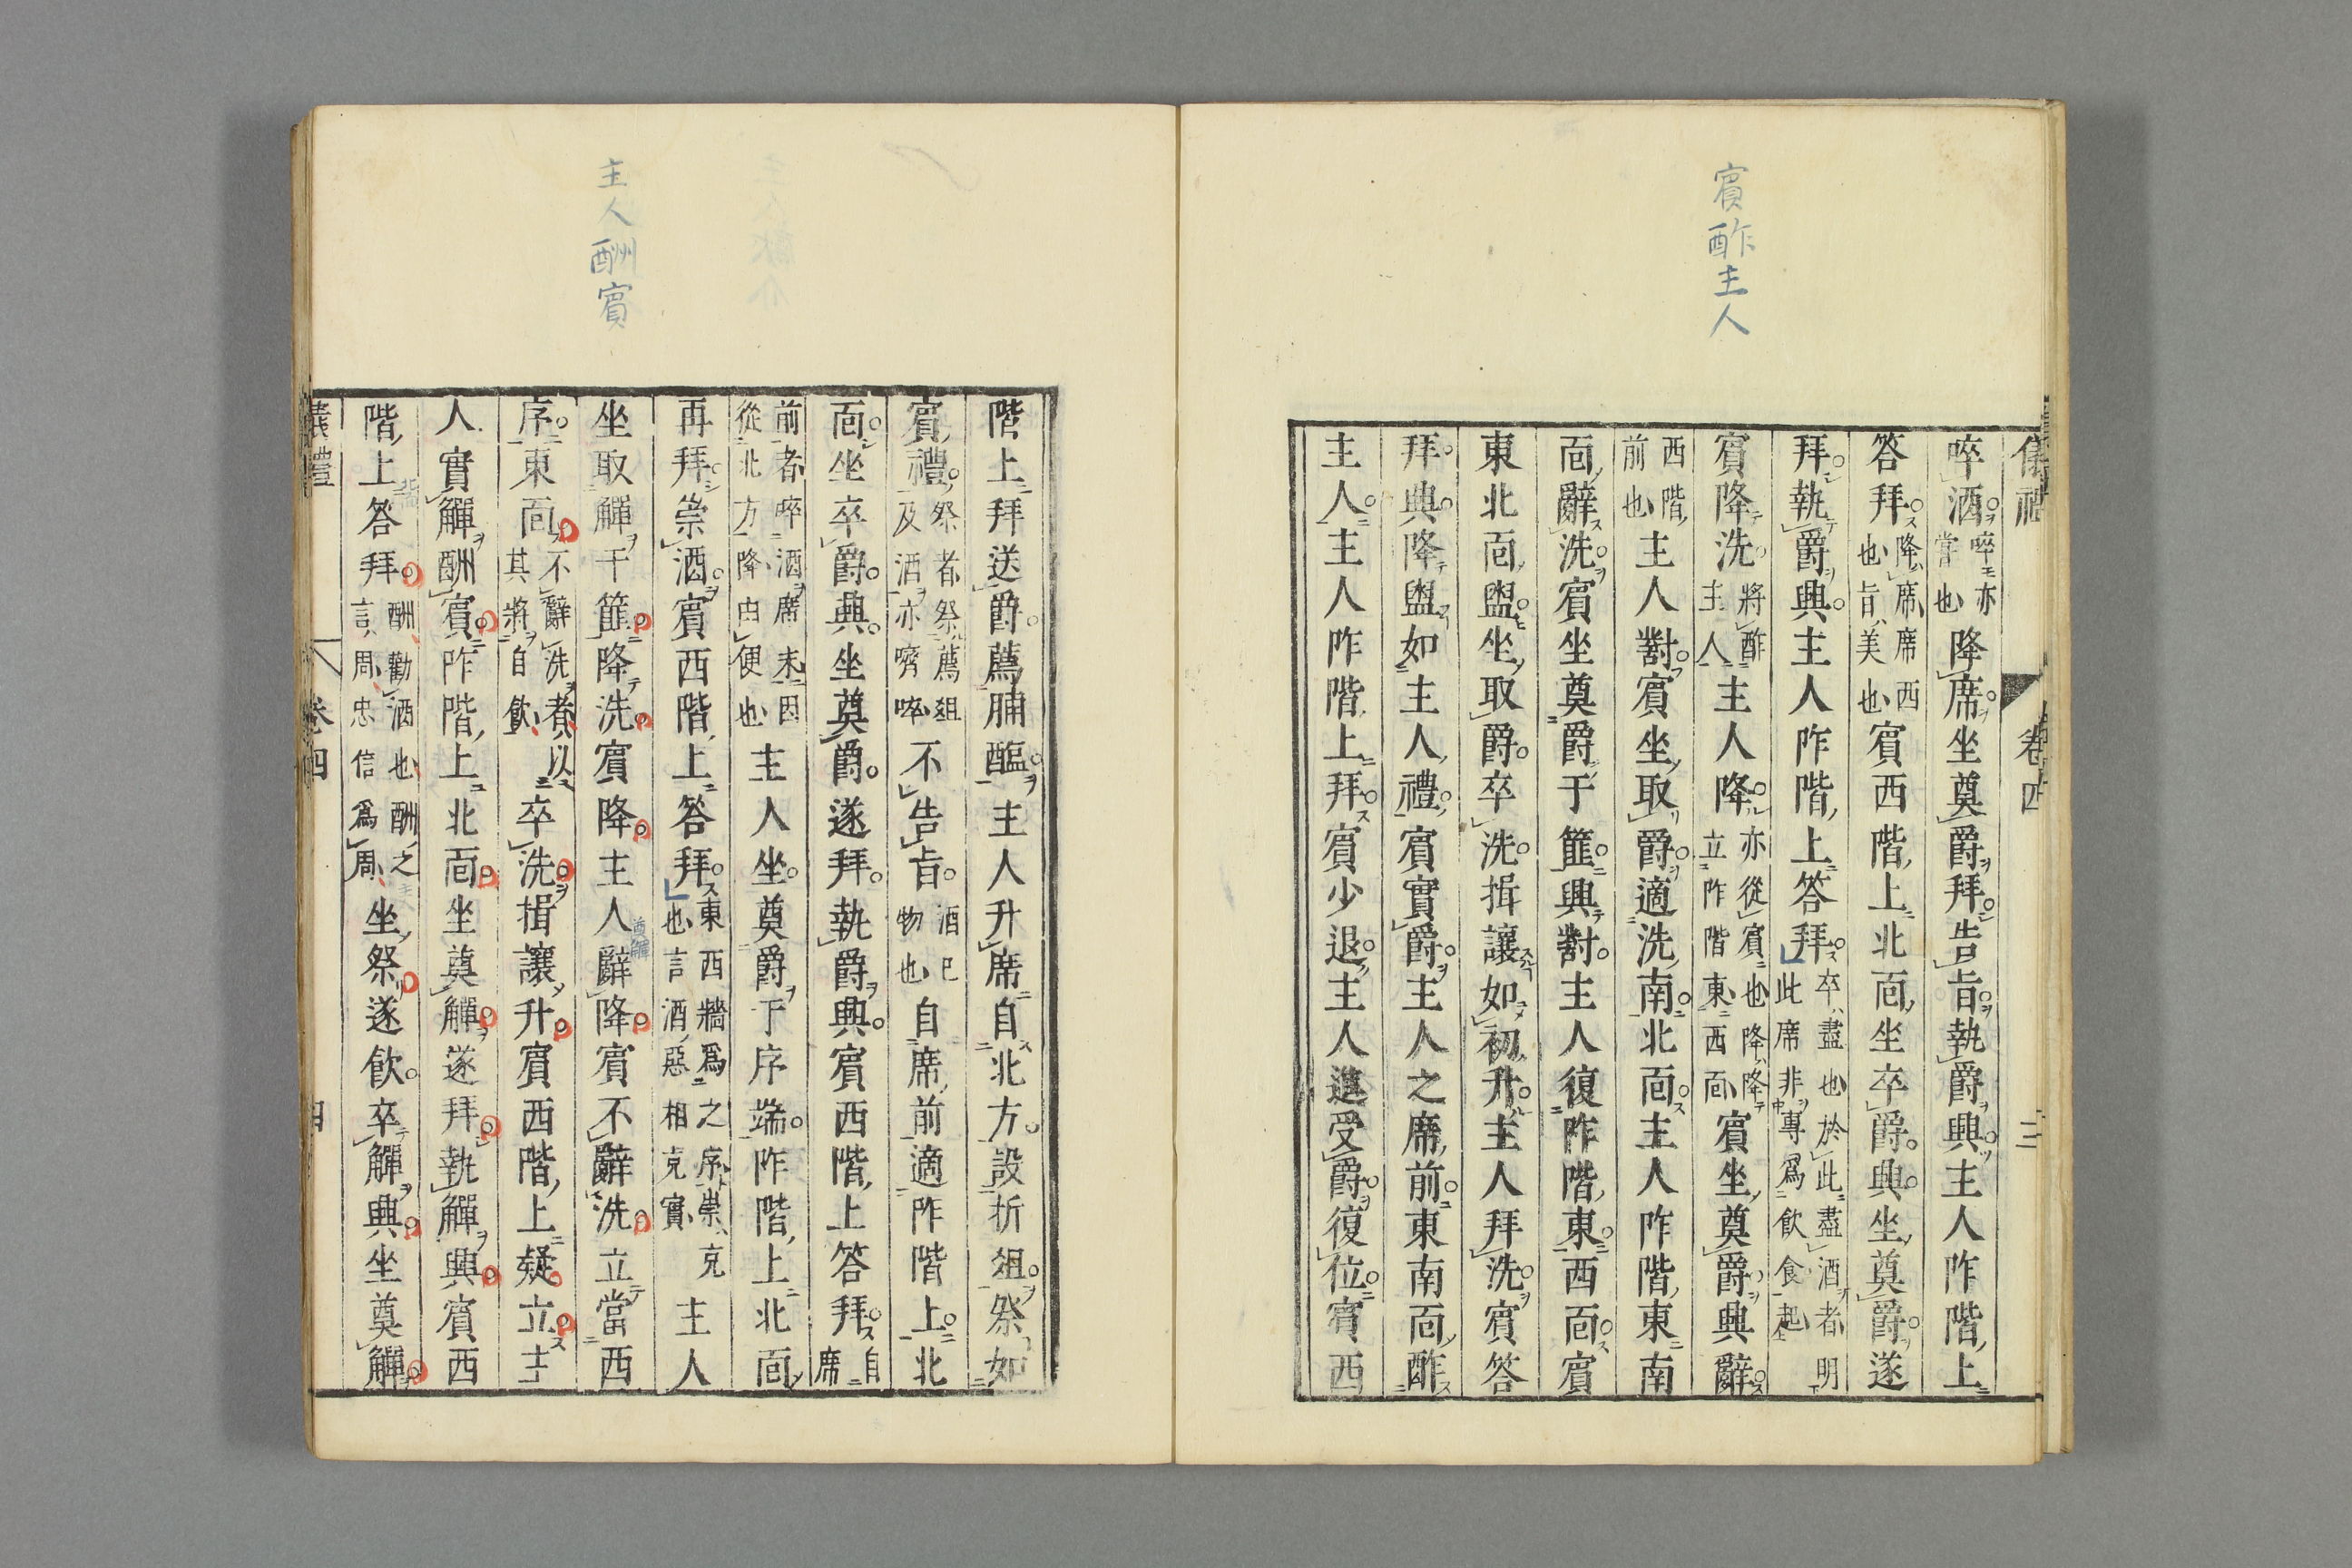 賓酢主人
儀禮 卷四 三
啐酒啐亦嘗也降席坐奠爵拜告旨執爵興主人阼階上
答拜降席席西也旨美也賓西階上北靣坐卒爵興坐奠爵遂
拜執爵興主人阼階上答拜卒盡也於此盡酒者明此席非專爲飲食起
賓降洗將酢主人主人降亦從賓也降降立阼階東西靣賓坐奠爵興辭
西階前也主人對賓坐取爵適洗南北靣主人阼階東南
靣辭洗賓坐奠爵于篚興對主人復阼階東西靣賓
東北靣盥坐取爵卒洗揖讓如初升主人拜洗賓答
拜興降盥如主人禮賓實爵主人之席前東南靣酢
主人主人阼階上拜賓少退主人進受爵復位賓西
主人酬賓
階上拜送爵薦脯醢主人升席自北方設折俎祭如
賓禮祭者祭薦俎及酒亦嚌啐不告旨酒已物也自席前適阼階上北
靣坐卒爵興坐奠爵遂拜執爵興賓西階上答拜自席
前者啐酒席末因從北方降由便也主人坐奠爵于序端阼階上北靣
再拜崇酒賓西階上答拜東西牆爲之序崇充也言酒惡相充實主人
坐取觶于篚降洗賓降主人辭降賓不辭洗立當西
序東靣不辭洗者以其將自飲卒洗揖讓升賓西階上疑立主
人實觶酬賓阼階上北靣坐奠觶遂拜執觶興賓西
階上答拜酬勸酒也酬之言周忠信爲周坐祭遂飲卒觶興坐奠觶
儀禮 卷四 四